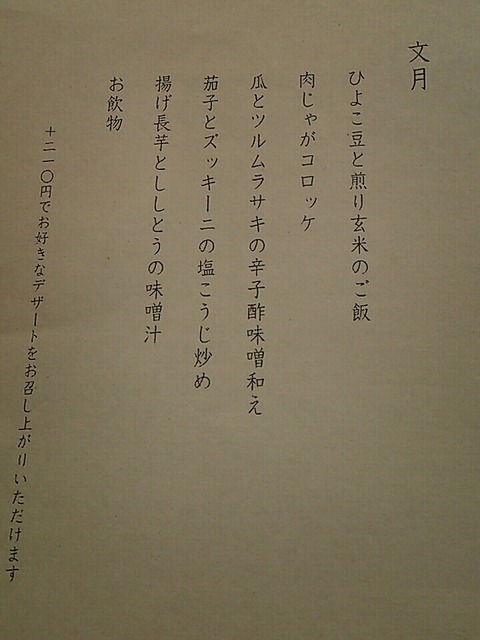 文月
ひよこ豆と煎り玄米のご飯
肉じゃがコロッケ
瓜とツルムラサキの辛子酢味噌和え
茄子とズッキーニの塩こうじ炒め
揚げ長芋とししとうの味噌汁
お飲物
+二一〇円でお好きなデザートをお召し上がりいただけます